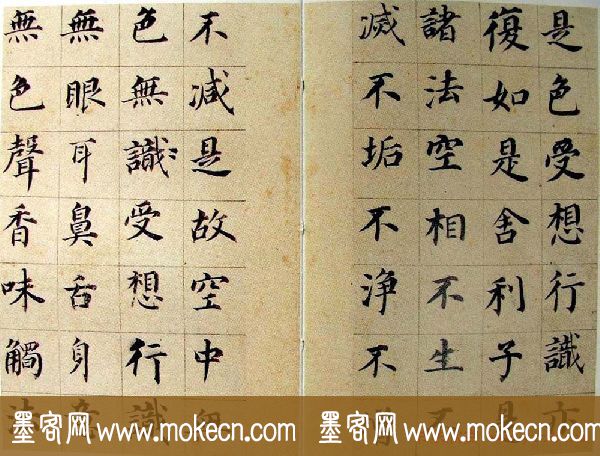 是色受想行識亦
復如是舍利子是
諸法空相不生不
滅不垢不淨不增
不減是故空中無
色無識受想行識
無眼耳鼻舌身意
無色聲香味觸法
墨客网 www.mokecn.com 墨客网 www.mokecn.com